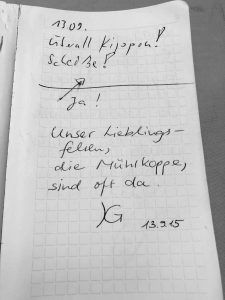 1309.
überall Kippen!
Scheiße!
Ja!
Unser Lieblings-
felsen,
die Mühlkoppe,
sind oft da.
G
13.9.15